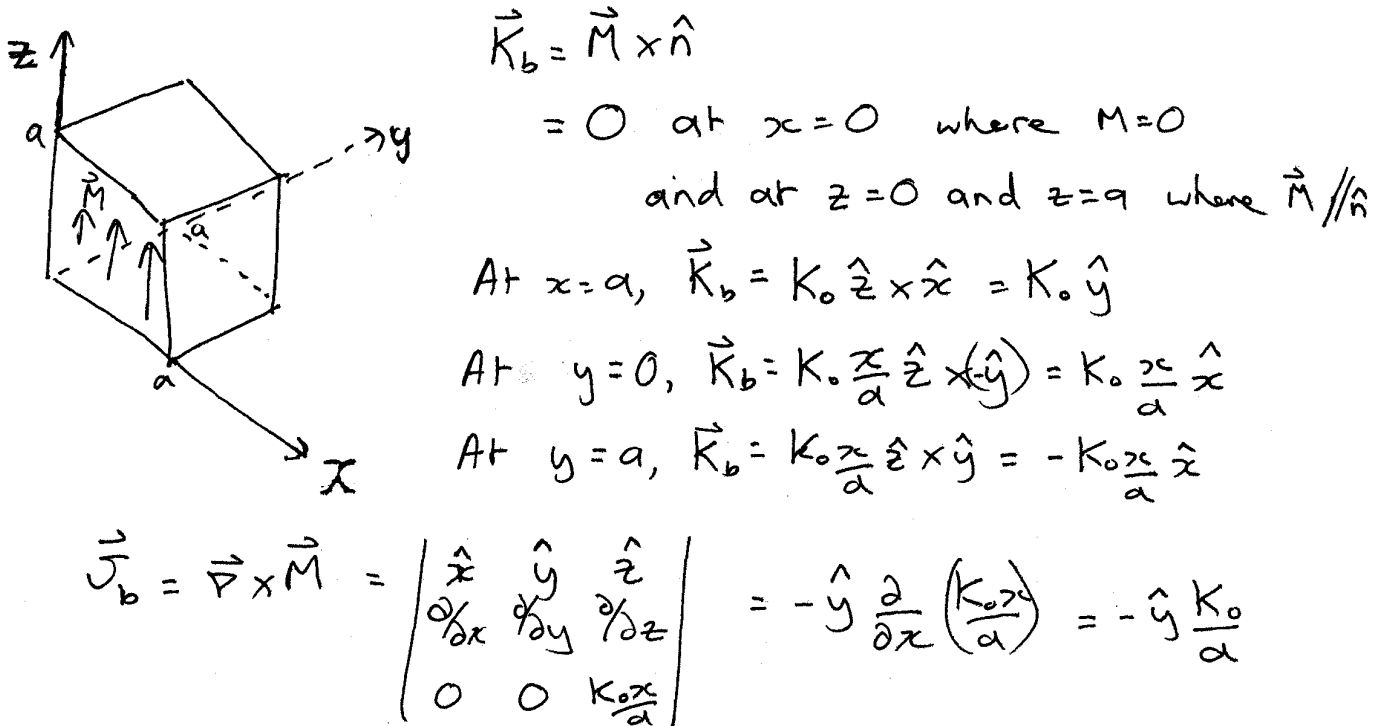 z
a
y
M⃗
a
a
x
K⃗_b = M⃗ × n̂
= 0 at x=0 where M=0
and at z=0 and z=a where M⃗ // n̂
At x=a, K⃗_b = K₀ ẑ × x̂ = K₀ ŷ
At y=0, K⃗_b = K₀ x/a ẑ × (-ŷ) = K₀ x/a x̂
At y=a, K⃗_b = K₀ x/a ẑ × ŷ = - K₀ x/a x̂
J⃗_b = ∇⃗ × M⃗ = | x̂ ŷ ẑ | = - ŷ ∂/∂x (K₀x/a) = - ŷ K₀/a
∂/∂x ∂/∂y ∂/∂z
0 0 K₀x/a